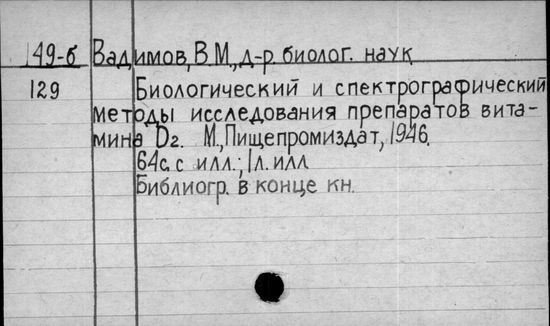 149-б Вадимов, В.М., д-р. биолог. наук
129 Биологический и спектрографический
методы исследования препаратов вита-
мина D2. М., Пищепромиздат, 1946.
64с. с илл.; 1л. илл
Библиогр. в конце кн.